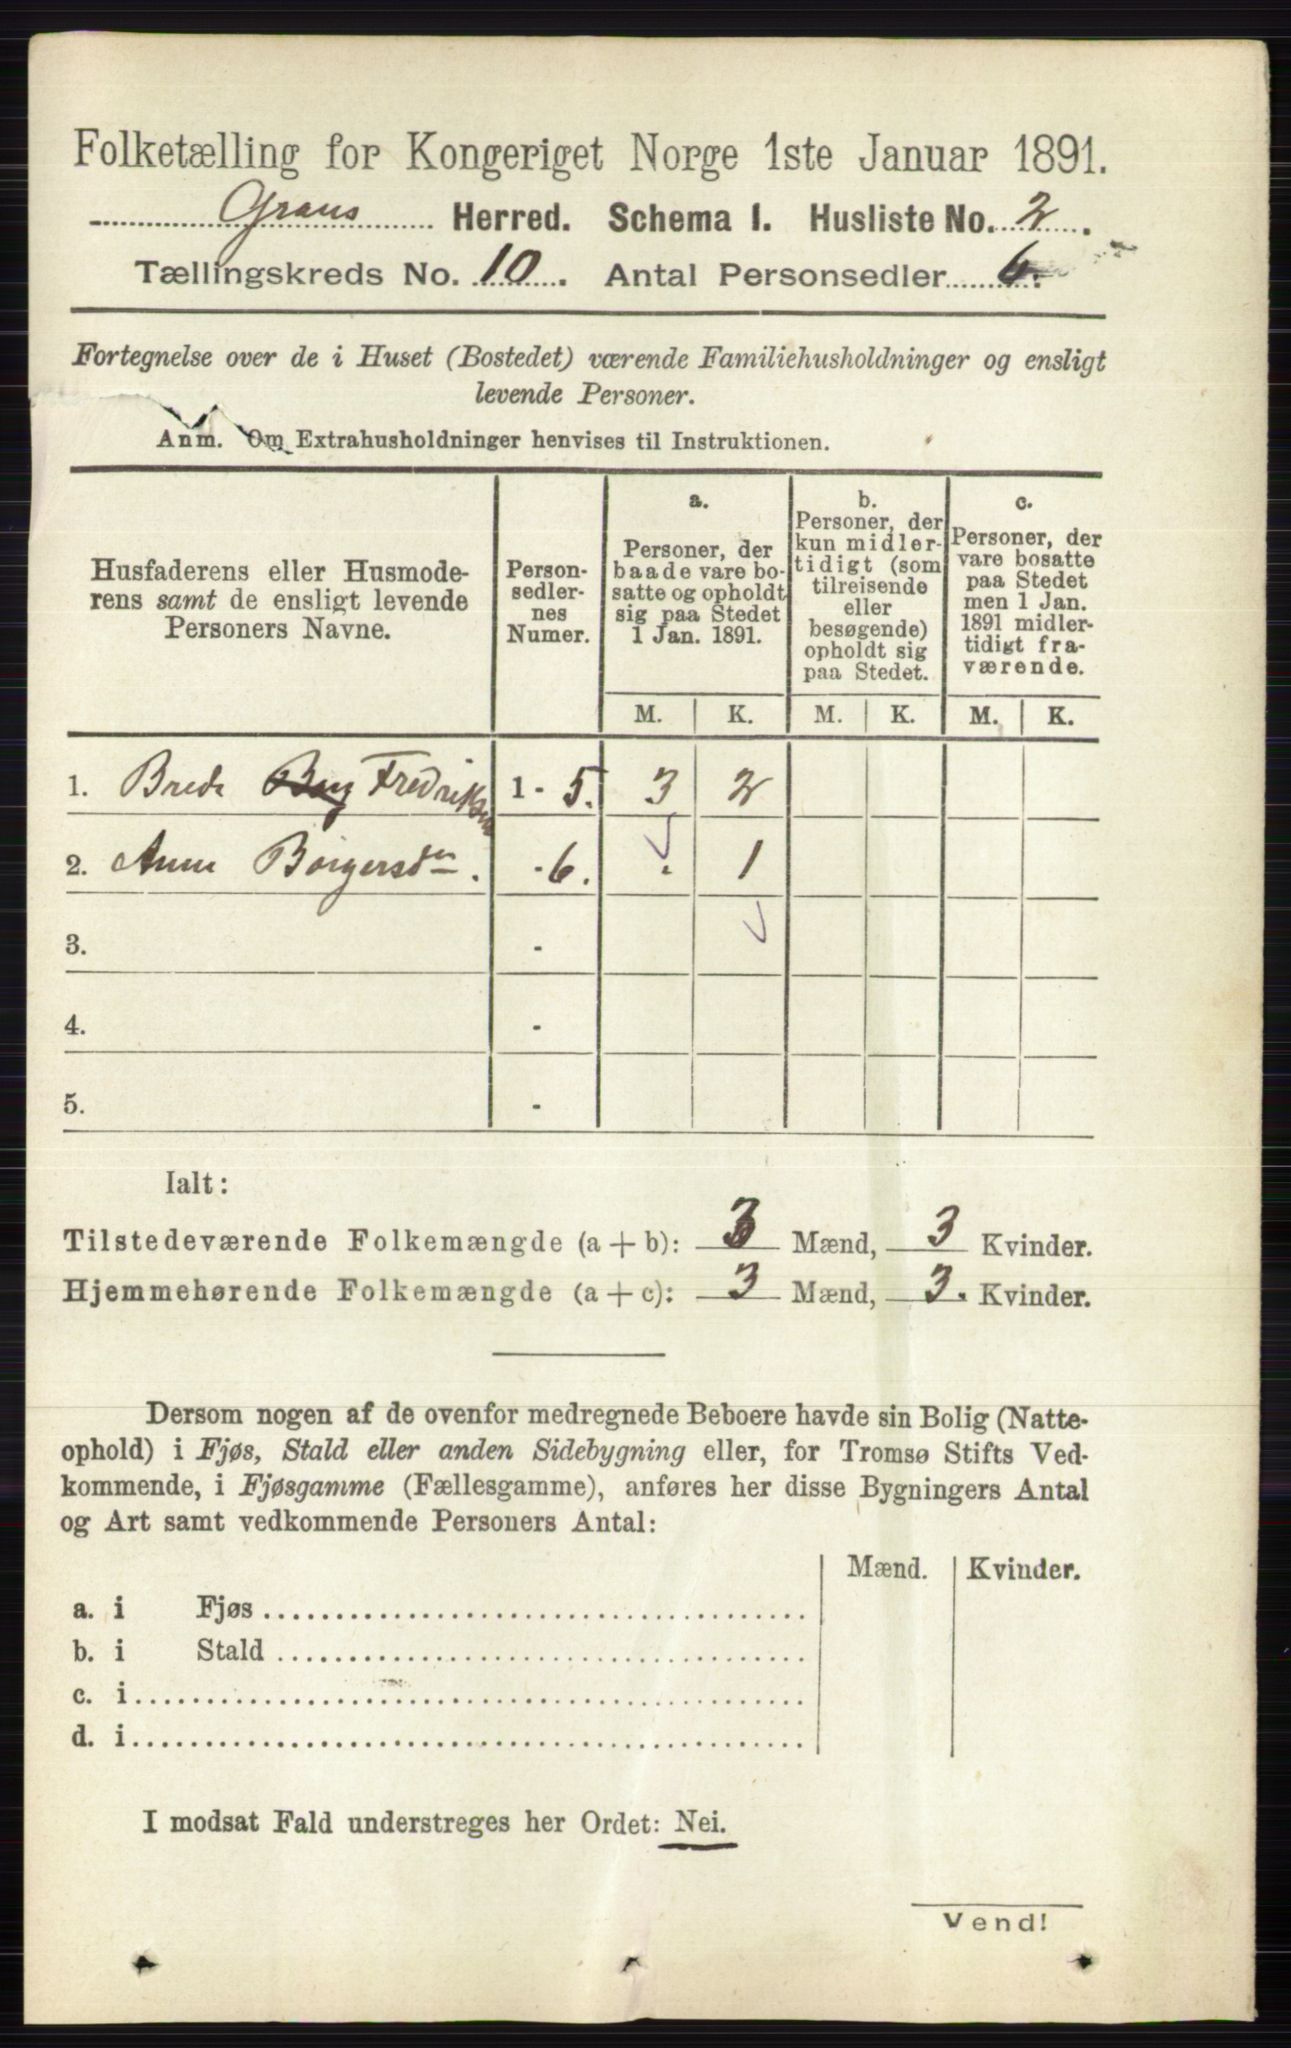 Folketælling for Kongeriget Norge 1ste Januar 1891.
Grans Herred. Schema I. Husliste No. 2.
Tællingskreds No. 10. Antal Personsedler 6.
Fortegnelse over de i Huset (Bostedet) værende Familiehusholdninger og ensligt
levende Personer.
Anm. Om Extrahusholdninger henvises til Instruktionen.
Husfaderens eller Husmode-
rens samt de ensligt levende
Personers Navne.
Person-
sedler-
nes
Numer.
a.
Personer, der
baade vare bo-
satte og opholdt
sig paa Stedet
1 Jan. 1891.
b.
Personer, der
kun midler-
tidigt (som
tilreisende
eller
besøgende)
opholdt sig
paa Stedet.
c.
Personer, der
vare bosatte
paa Stedet
men 1 Jan.
1891 midler-
tidigt fra-
værende.
M. K. M. K. M. K.
1. Brede Fredriksen 1 - 5. 3 2
2. Anne Börgersdtr. - 6. . 1
3. -
4. -
5. -
Ialt:
Tilstedeværende Folkemængde (a + b): 3 Mænd, 3 Kvinder.
Hjemmehørende Folkemængde (a + c): 3 Mænd, 3. Kvinder.
Dersom nogen af de ovenfor medregnede Beboere havde sin Bolig (Natte-
ophold) i Fjøs, Stald eller anden Sidebygning eller, for Tromsø Stifts Ved-
kommende, i Fjøsgamme (Fællesgamme), anføres her disse Bygningers Antal
og Art samt vedkommende Personers Antal:
Mænd. Kvinder.
a. i Fjøs
b. i Stald
c. i
d. i
I modsat Fald understreges her Ordet: Nei.
Vend!